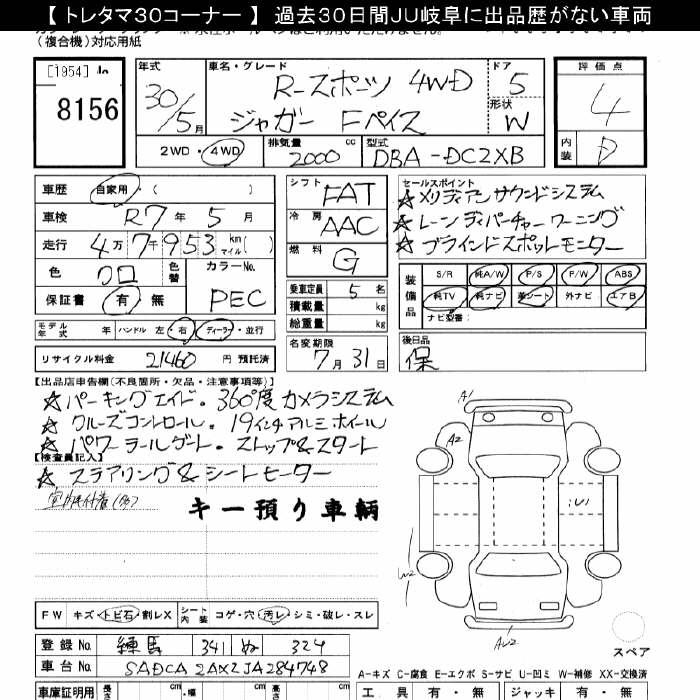 【トレタマ30コーナー】 過去30日間JU岐阜に出品歴がない車両
(複合機)対応用紙
[1954]
8156
年式 車名・グレード ドア 評価点
30/5月 R-スポーツ 4WD 5 4
ジャガー Fペイス 形状 W
2WD・4WD 排気量 2000 cc 型式 DBA-DC2XB 内装 D
車歴 自家用・( )
車検 R7年 5月
走行 4万 7千 953 km マイル( )
色 クロ 色替 カラーNo. PEC
保証書 有 無
シフト FAT
冷房 AAC
燃料 G
乗車定員 5 名
積載量 kg
総重量 kg
セールスポイント
☆メリディアンサウンドシステム
☆レーンディパーチャーワーニング
☆ブラインドスポットモニター
装備品 S/R 純A/W P/S P/W ABS
純TV 純ナビ 革シート 外ナビ エアB
ナビ型番:
モデル年式 年 ハンドル 左・右 ディーラー・並行
リサイクル料金 21460 円 預託済
名変期限 7月31日
後日品 保
【出品店申告欄(不良箇所・欠品・注意事項等)】
☆パーキングエイド・360度カメラシステム
☆クルーズコントロール・19インチアルミホイール
☆パワーテールゲート・ストップ&スタート
【検査員記入】
☆ステアリング&シートヒーター
キー預り車輌
A1
A2
U1
W2
FW キズ・トビ石・割レX シート内装 コゲ・穴・汚レ・シミ・破レ・スレ
スペア
登録No. 練馬 341 ぬ 324
車台No. SADCA2AX2JA284748
A-キズ C-腐食 E-エクボ S-サビ U-凹ミ W-補修 XX-交換済
車庫証明用 長さ cm ・幅 cm cm 工具 有・無 ジャッキ 有・無